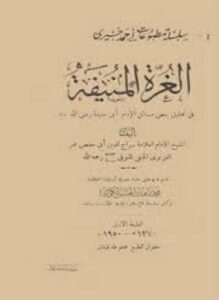 سلسلة مطبوعات أحمد خيري
الغرة المنيفة
في تحقيق بعض مسائل الإمام أبي حنيفة رضي الله عنه
تأليف
الشيخ الإمام العلامة سراج الدين أبي حفص عمر
الغزنوي الحنفي المتوفى سنة ٧٧٣ رحمه الله
محمد زاهد بن الحسن الكوثري
الطبعة الأولى
١٣٧٠ - ١٩٥٠
حقوق الطبع محفوظة للناشر